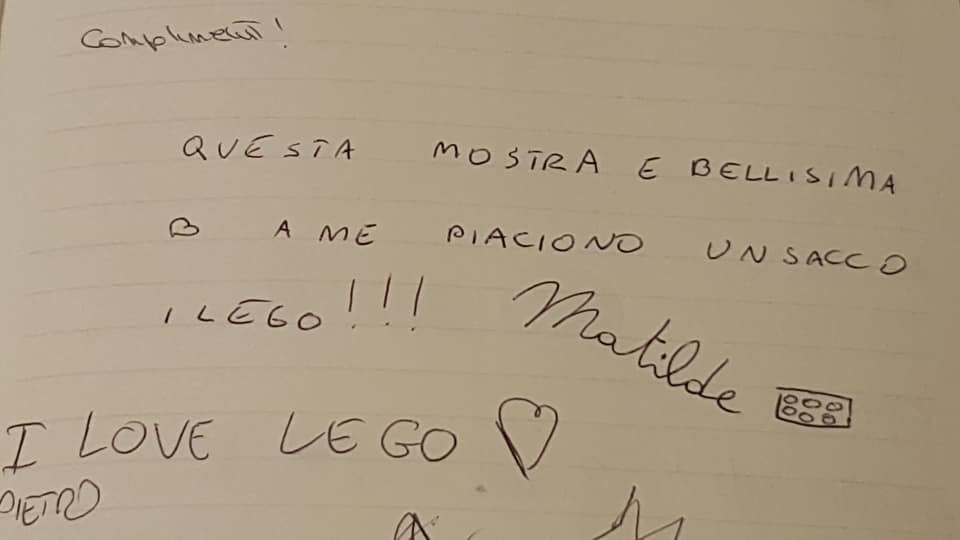 Complimenti!
QUESTA MOSTRA E BELLISIMA
A ME PIACIONO UN SACCO
I LEGO!!!
Matilde
I LOVE LEGO
PIETRO